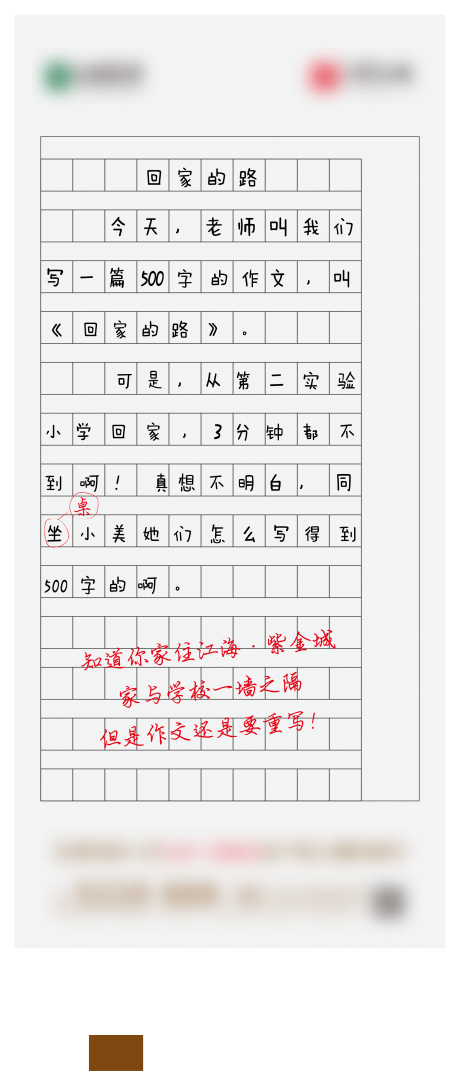 回家的路
今天，老师叫我们
写一篇500字的作文，叫
《回家的路》。
可是，从第二实验
小学回家，3分钟都不
到啊！真想不明白，同
桌
坐小美她们怎么写得到
500字的啊。
知道你家住江海·紫金城
家与学校一墙之隔
但是作文还是要重写！